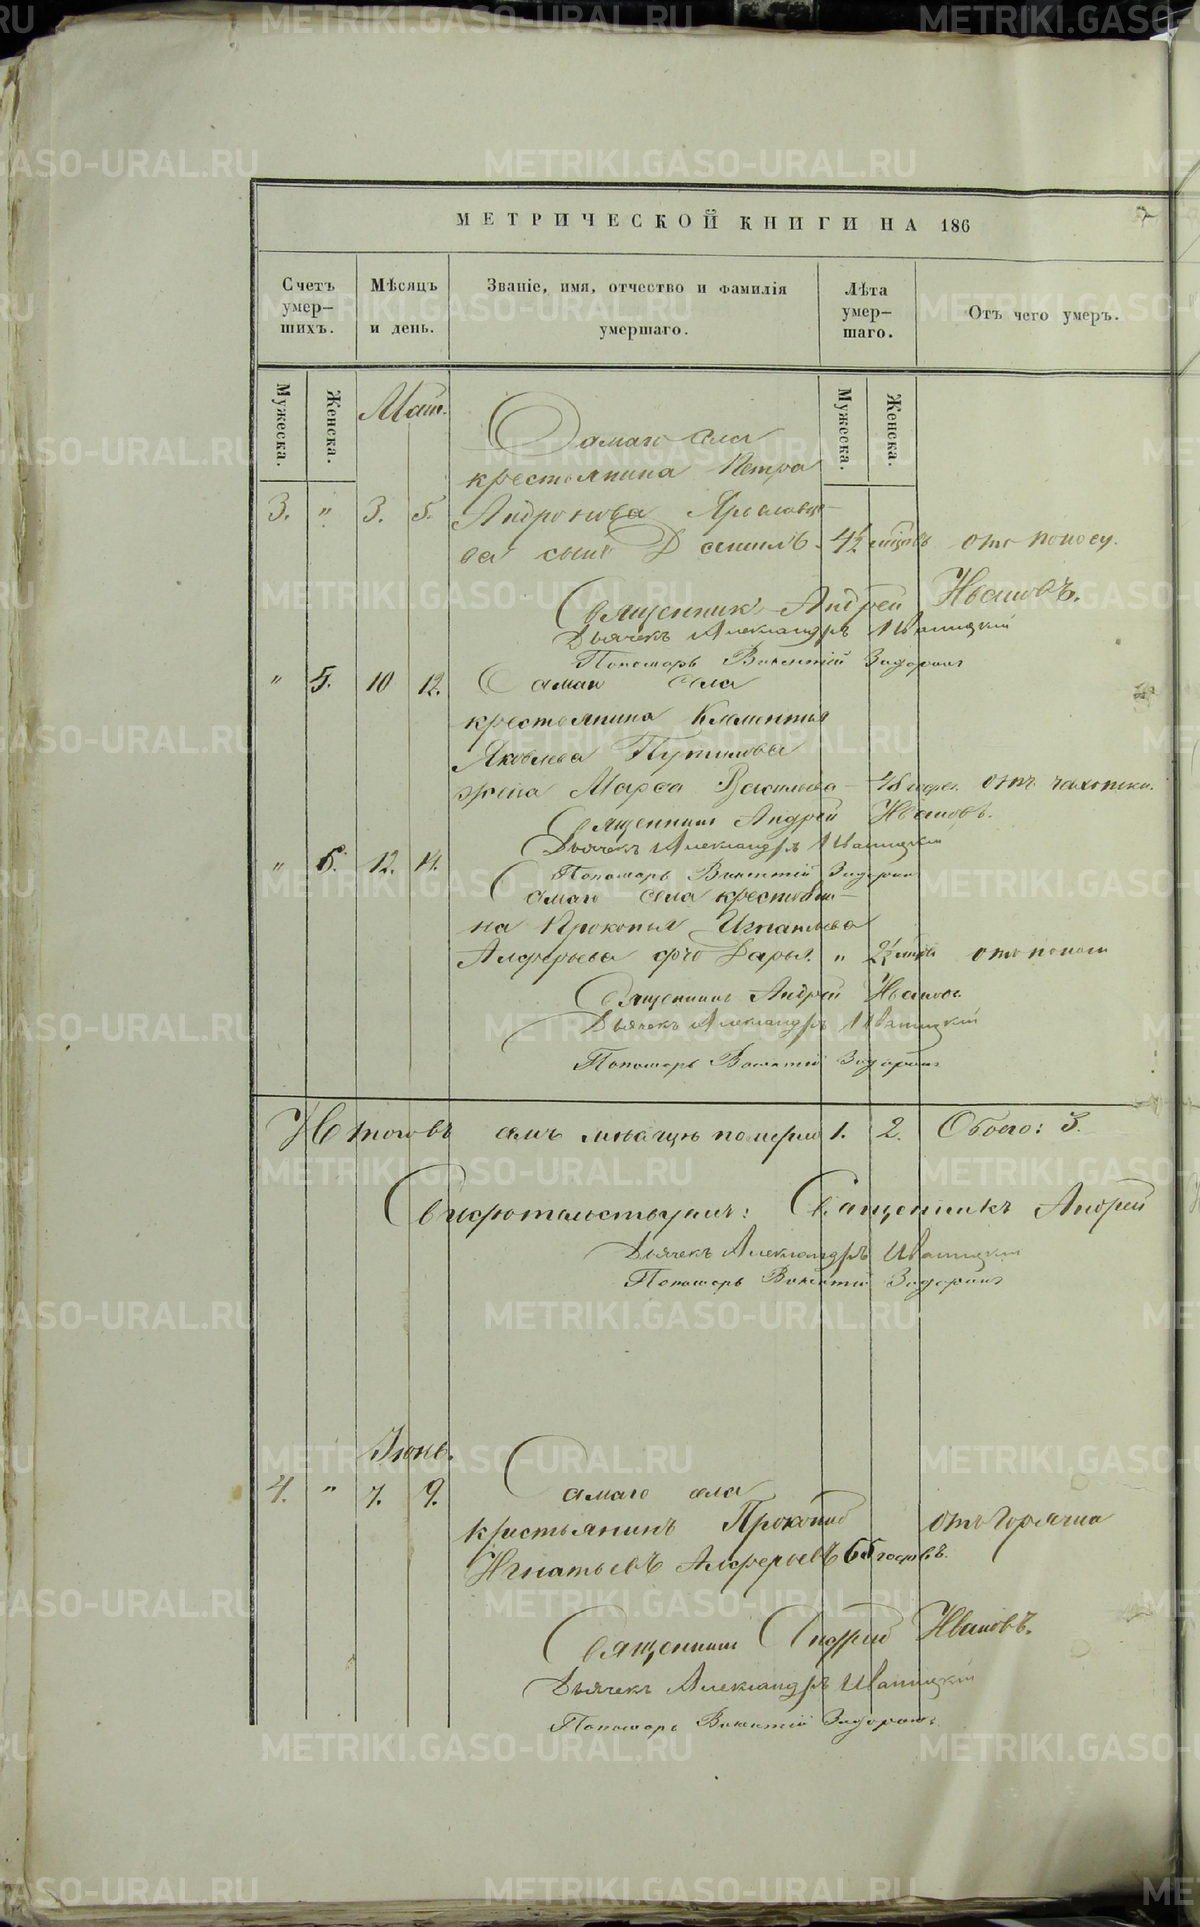 МЕТРИЧЕСКОЙ КНИГИ НА 186
Счетъ умер-шихъ.
Мѣсяцъ и день.
Званіе, имя, отчество и фамилія умершаго.
Лѣта умер-шаго.
Отъ чего умеръ.
Мужеска.
Женска.
Май.
Мужеска.
Женска.
Самаго села
крестьянина Петра
3. " 3. 5. Андронова
ва сынъ Даниилъ. 4½ отъ поносу.
Священникъ Андрей Ивановъ.
Дьячекъ Александръ Иваницкій
Пономарь Викентій Задоринъ
" 5. 10 12. Самаго села
крестьянина Климентья
Яковлева Путилова
жена Марѳа Васильева 48 отъ чахотки.
Священникъ Андрей Ивановъ.
Дьячекъ Александръ Иваницкій
" 6. 12. 14. Пономарь Викентій Задоринъ
Самаго села крестьяни-
на Прокопья Игнатьева
Алферьева дчь Дарья. " 2½ отъ поносу
Священникъ Андрей Ивановъ
Дьячекъ Александръ Иваницкій
Пономарь Викентій Задоринъ
Итого въ семъ мѣсяцѣ померло 1. 2. Обоего: 3.
Свидѣтельствуютъ: Священникъ Андрей
Дьячекъ Александръ Иваницкій
Пономарь Викентій Задоринъ
Іюнь.
4. " 7. 9. Самаго села
крестьянинъ Прокопій отъ горячки
Игнатьевъ Алферьевъ 65 годовъ.
Священникъ Андрей Ивановъ.
Дьячекъ Александръ Иваницкій
Пономарь Викентій Задоринъ.
METRIKI.GASO-URAL.RU